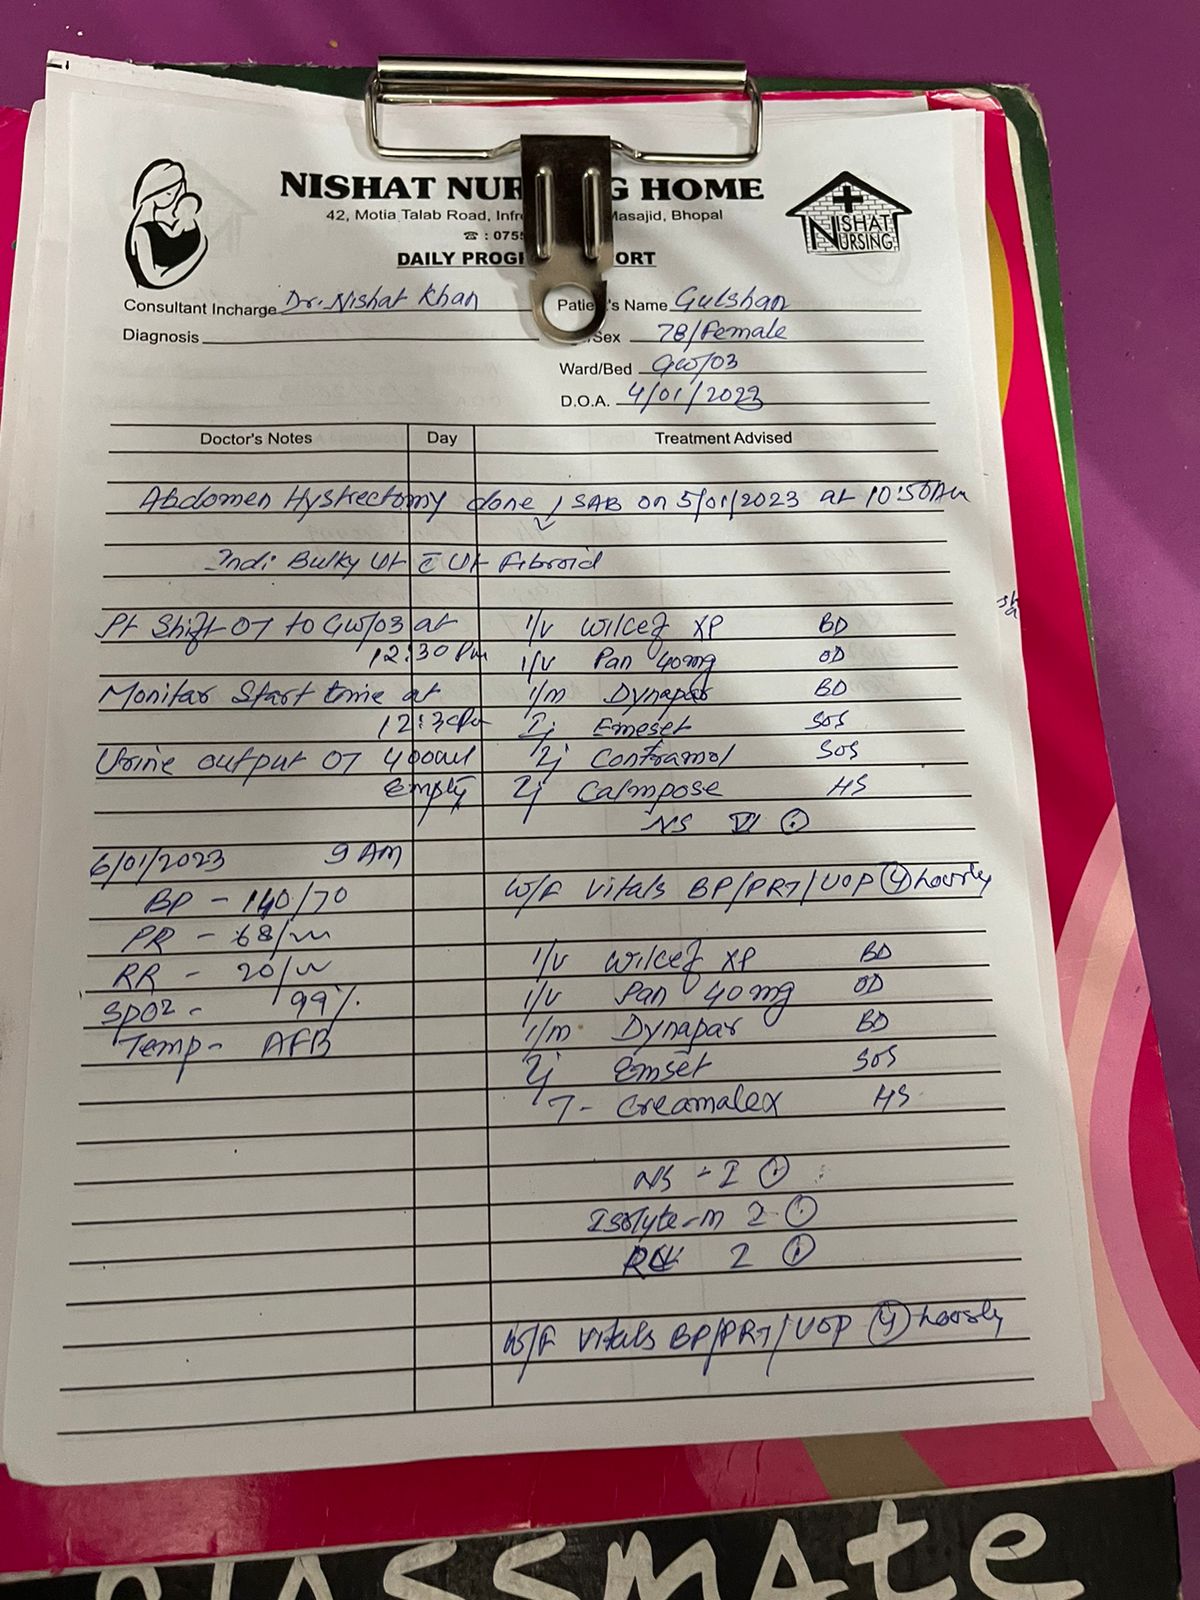 NISHAT NUR G HOME
42, Motia Talab Road, Infr Masajid, Bhopal
☎ : 0755
DAILY PROG ORT
NISHAT
NURSING
Consultant Incharge Dr. Nishat Khan
Patie 's Name Gulshan
Diagnosis
/Sex 78/Female
Ward/Bed GW/03
D.O.A. 4/01/2023
Doctor's Notes Day Treatment Advised
Abdomen Hystrectomy done / SAB on 5/01/2023 at 10:50Am
Indi Bulky Ut c̄ Ut Fibroid
Pt Shift OT to GW/03 at 12:30 Pm
Monitar Start time at 12:30Pm
Urine output OT 400ml Empty
I/V Wilcef XP BD
I/V Pan 40mg OD
I/m Dynapar BD
Ij Emeset SOS
Ij Contramol SOS
Ij Calmpose HS
NS VI
W/F Vitals BP/PRT/UOP 4 hourly
6/01/2023 9 AM
BP - 140/70
PR - 68/m
RR - 20/m
SPO2 - 99%
Temp - AFB
I/V Wilcef XP BD
I/V Pan 40mg OD
I/m Dynapar BD
Ij Emset SOS
T- Creamalex HS
NS - I
Isolyte-m 2
2
W/F Vitals BP/PRT/UOP 4 hoorly
CLASSMATE